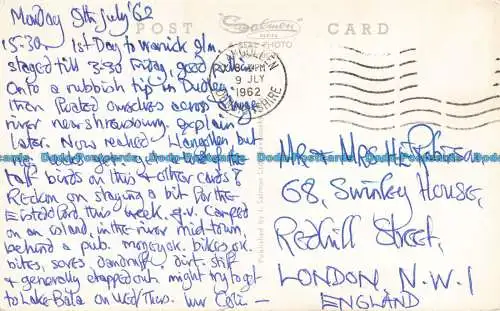 Monday 9th July '62
15-30. 1st Day to Warwick 91m.
stayed till 3-30 Friday, good
Onto a rubbish tip in Dudley.
then floated ourselves across
river near shrewsbury, explain
later. Now reached Llangollen but
birds on this & other cards &
Reckon on staying a bit for the
Eistedfod, this week. Camped
on an island, in the river mid-town,
behind a pub. money ok. bikes ok.
bites, sores, dandruff, dirt, stiff
& generally clapped out. might try to get
to Lake Bala on Wed/Thurs. luv Colin —
POST CARD
Salmon
REAL PHOTO
LLANGOLLEN
PM
9 JLY
1962
DENBIGHSHIRE
Published by J. Salmon
Mr & Mrs H.E.
68, Swinley House,
Redhill Street,
LONDON, N.W.1
ENGLAND